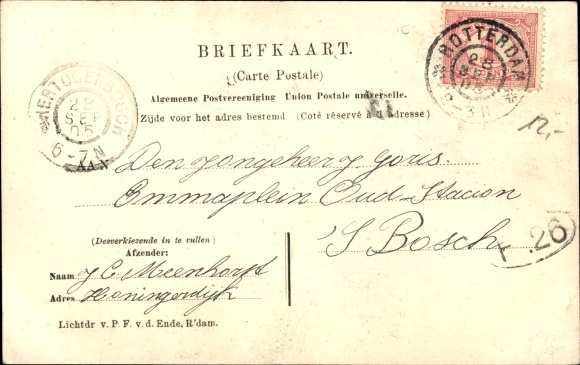 BRIEFKAART.
(Carte Postale)
Algemeene Postvereeniging Union Postale universelle.
Zijde voor het adres bestemd (Coté réservé à l'adresse)
ROTTERDAM
28
SEP
05
'S HERTOGENBOSCH
28
SEP
05
6-7N
12,-
AAN
Den Jongeheer J Goris.
Emmaplein Oud-Stacion
'S Bosch
26
(Desverkiezende in te vullen)
Afzender:
Naam J C Meenhorst
Adres Honingerdijk
Lichtdr v. P. F. v. d. Ende, R'dam.